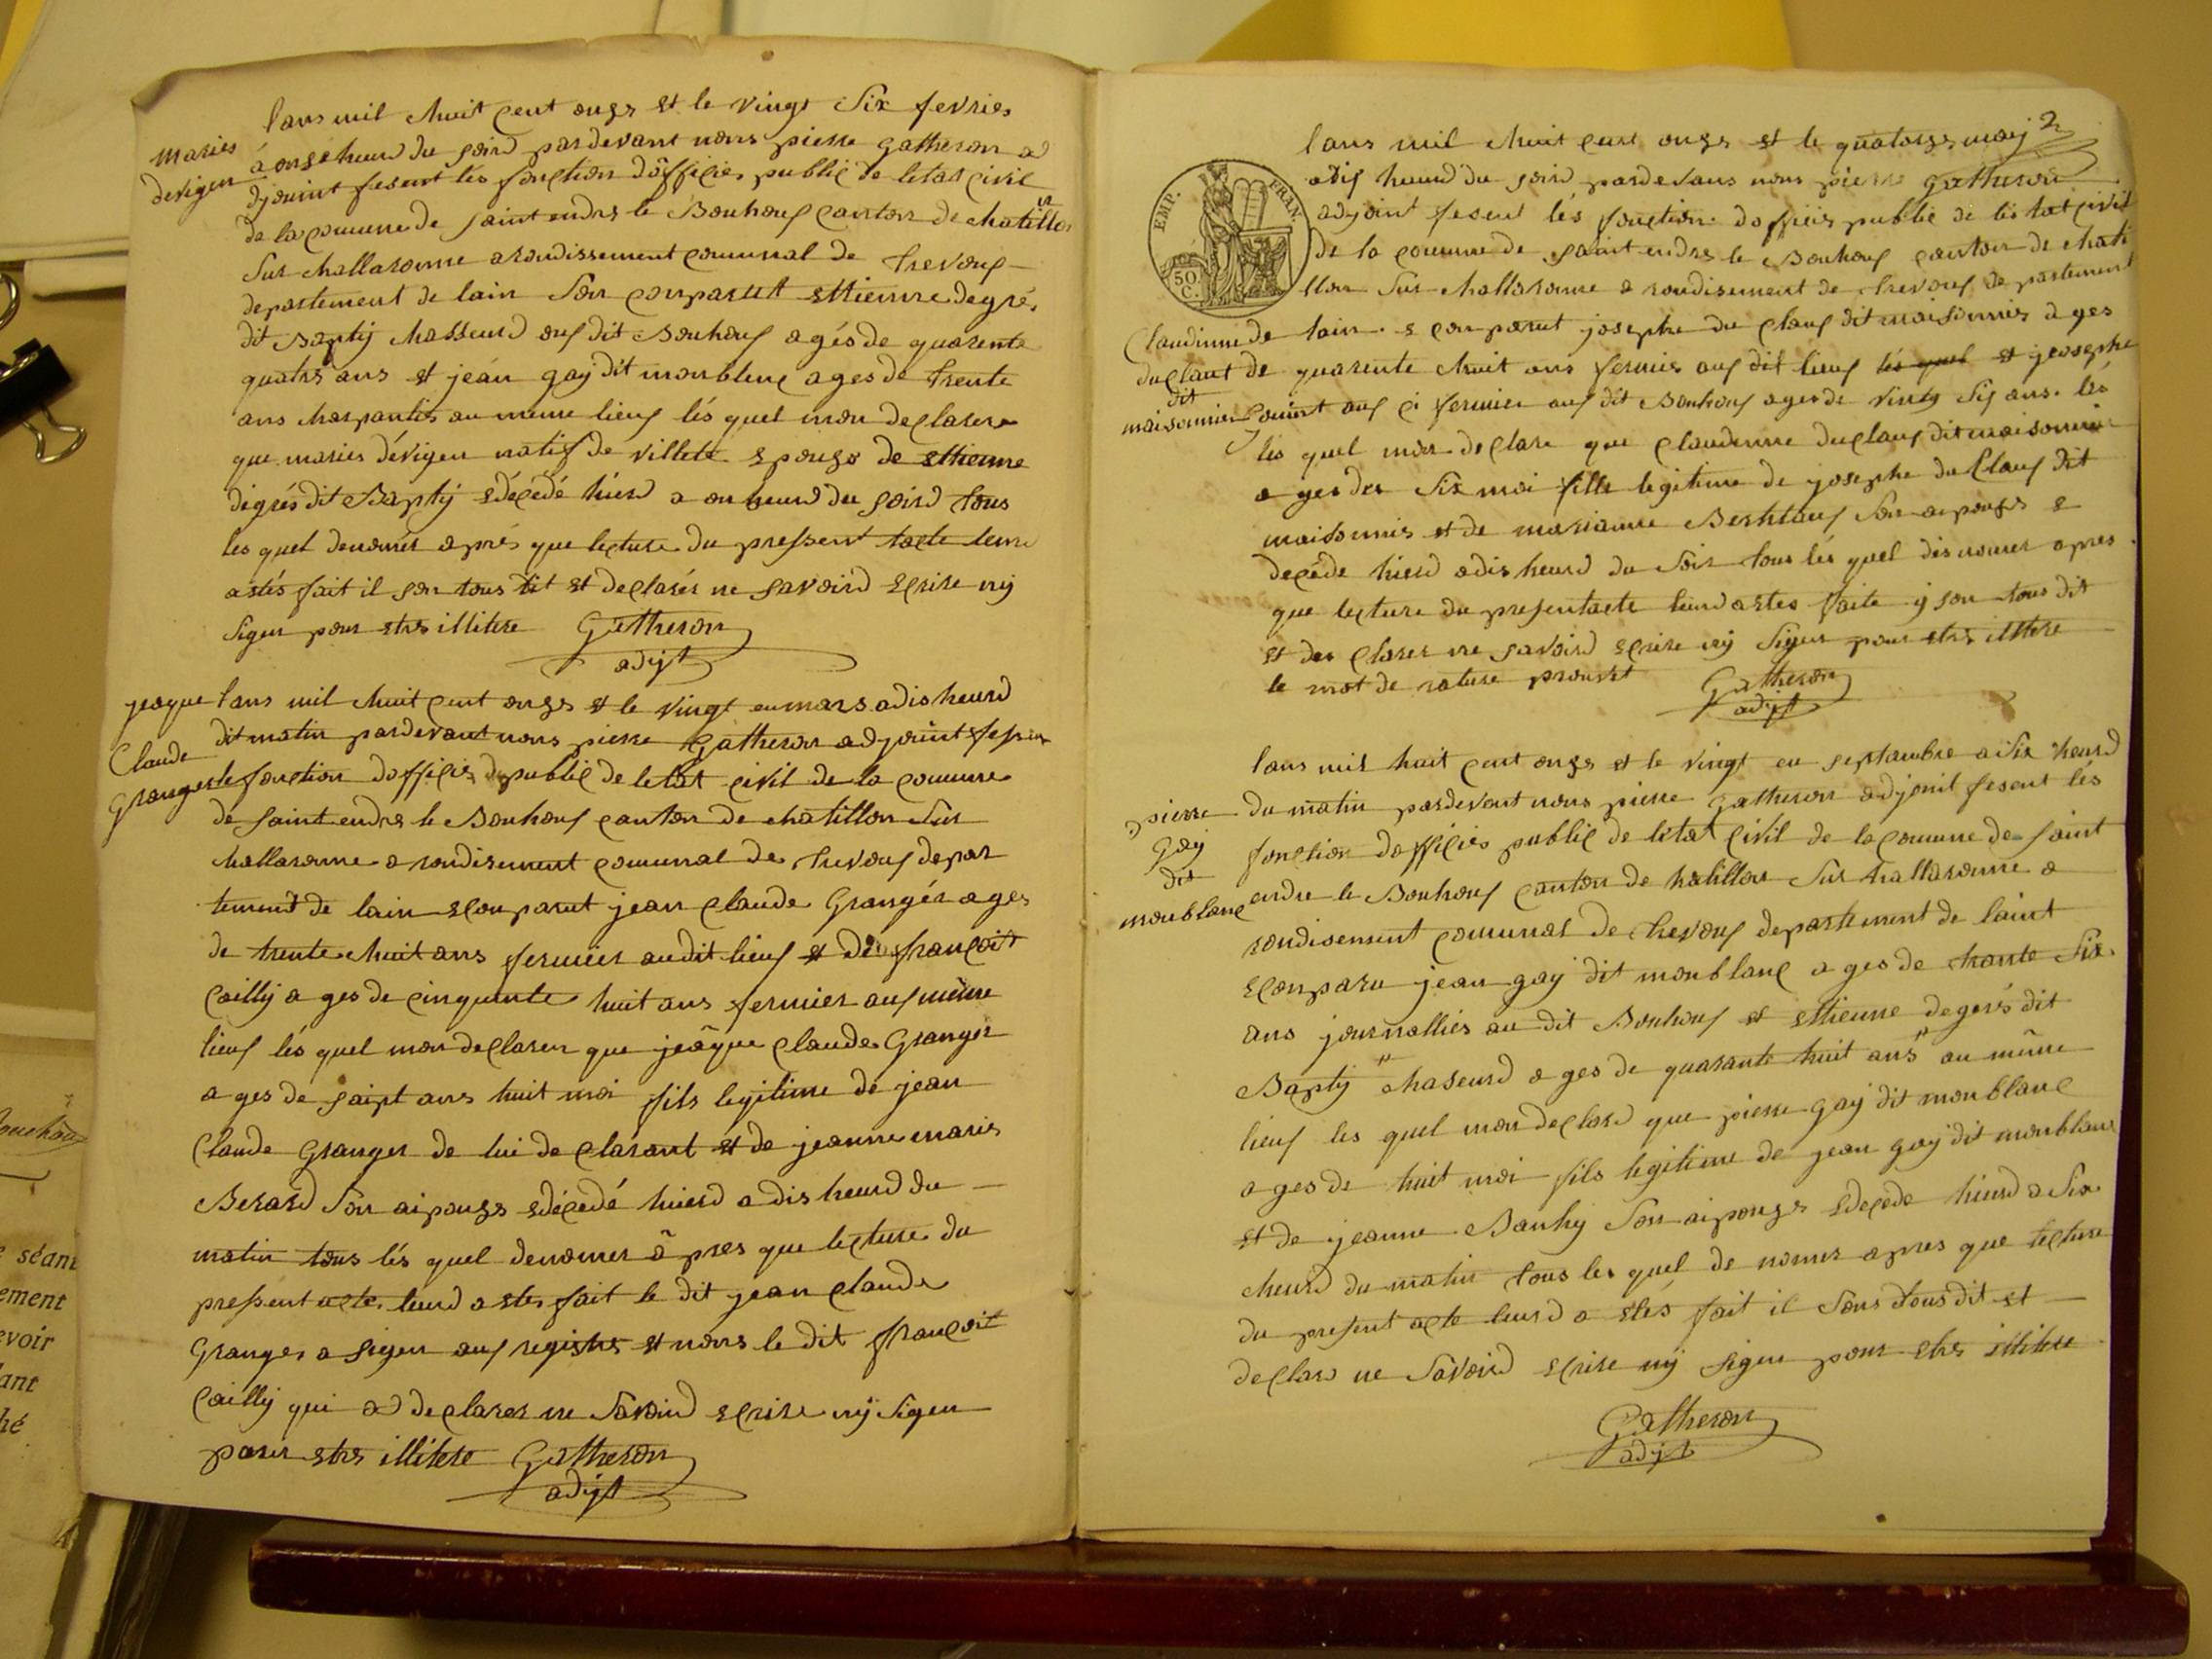 maries
devigen
lans mil huit cent onze et le vingt six fevries
à onse heurd du soird pardevant nous pierre gatheron ad
djouint fesent les fonction dofficies public de letat civil
de la comune de saint endre le Bouhouf canton de chatillon
sur challaronne arondissement comunal de trevouf
departement de lain son conparut ettienne degré
dit Bapty chasseurd ouf dit Bouhouf agés de quarente
quatre ans et jean gay dit monblenc ages de trente
ans charpantis au meme lieuf lés quel mon declarere
que maries dévigen natif de villete epouze de ettienne
degrés dit Bapty edecédé hierd a on heurd du soird tous
les quel denomés aprés que lecture du pressent tacte leurd
a etés fait il son tous dit et declarés ne savoird ecrire ny
signer pour etre illitere Gatheron
adjt
jeaque
Claude
Granger
lans mil huit cent onze et le vingt eu mars a dis heurd
dit matin pardevant nous pierre Gatheron adjouint fesen
le fonction dofficies public de letat civil de la comune
de saint endre le Bouhouf canton de chatillon sur
challaronne a rondisement comunal de trevouf depar
tement de lain econparut jean claude Grangér ages
de trente huit ans fermier audit lieuf et de françoit
Cailly ages de cinquente huit ans fermier auf même
lieuf lés quel mon declarer que jeâque claude Granger
ages de saipt ans huit moi fils legitime de jean
Claude Granger de lui de clarant et de jeanne maries
Berard son aipouze edécedé hierd a dis heurd du
matin tous lés quel denomer âpres que lecture du
pressent acte leurd a etes fait le dit jean claude
Granger a signer auf registre et nons le dit françoit
Cailly qui ad declarer ne savoird ecrire ny signer
pour etre illitere Gatheron
adjt
2
EMP. FRAN.
50 C.
Claudinne
duclaut
dit
maisonnier
lans mil huit cent onze et le quatorze may
a dis heurd du soird pardevans nous pierre gatheron
adjoint fesent lés fonction dofficis public de les tat civil
de la comune de saint endre le Bouhouf canton de chati
llon sur challaronne a rondisement de trevouf de partement
de lain e conparut josephe du clauf dit maisonnies ages
de quarente huit ans fermier auf dit lieuf lés quel et josephe
fermier auf dit Bouhouf ages de vinty sis ans lés
les quel mon declare que claudenne duclauf dit maisonnier
a ges des six moi fille legitime de josephe du Clauf dit
maisonnis et de marianne son aipouze e
decéde hierd a dis heurd du soir tous lés quel dis nomer apres
que lecture du presentacte leurd a etes faite y son tous dit
et des clarer ne savoird ecrire ny signer pour etre illitere
le mot de rature prouvet Gatheron
adjt
pierre
Gay
dit
monblanc
lans mil huit cent onze et le vingt eu septambre a six heurd
du matin pardevent nous pierre gatheron adjonit fesent lés
fonction dofficies public de létat civil de la comune de saint
endre le Bouhouf canton de hatillon sur hallaronne a
rondisement comunal de trevouf departement de laint
econparu jean gay dit monblanc a ges de trante six
ans journallies au dit Bouhouf et ettienne degerés dit
Bapty " chaseurd a ges de quarante huit ans " au même
lieuf les quel mon declard que pierre gay dit monblanc
a ges de huit moi fils legitime de jean gay dit monblanc
et de jeanne Banhy son aipouze edecede hierd a six
heurd du matin tous les quel de nomer apres que lecture
du present acte leurd a etés fait il sons tous dit et
declard ne savoird ecrire ny signer pour etre illitere
Gatheron
adjt
séant
ement
evoir
ant
hé